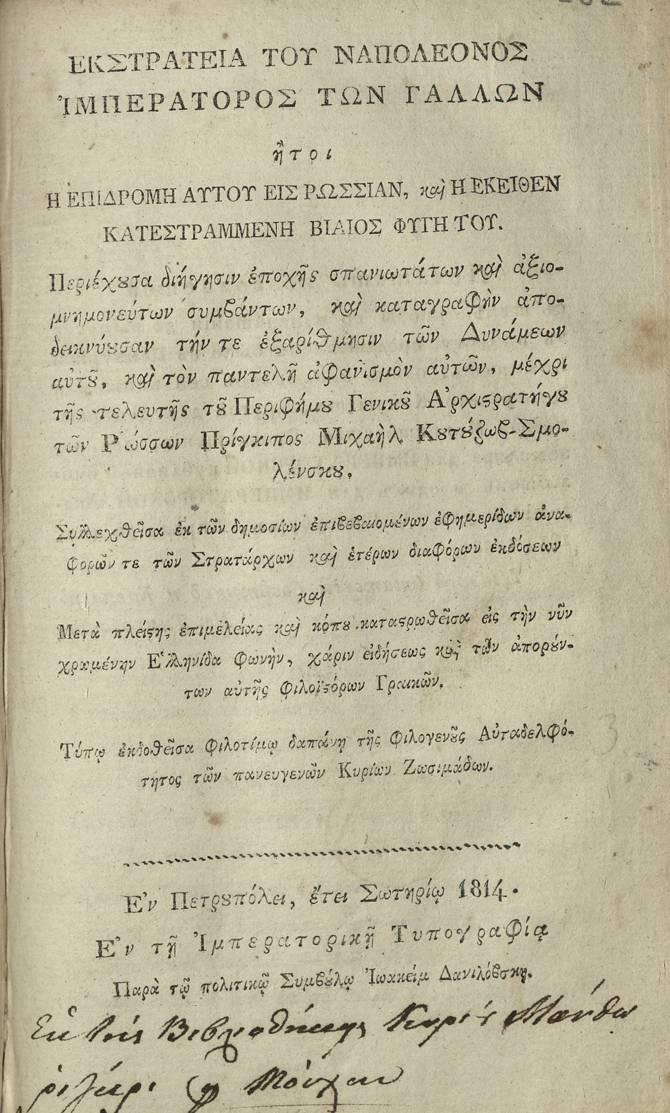 ΕΚΣΤΡΑΤΕΙΑ ΤΟΥ ΝΑΠΟΛΕΟΝΟΣ
ἸΜΠΕΡΑΤΟΡΟΣ ΤΩΝ ΓΑΛΛΩΝ
ἤτοι
Η ἘΠΙΔΡΟΜΗ ΑΥΤΟΥ ΕΙΣ ΡΩΣΣΙΑΝ, καὶ Η ΕΚΕΙΘΕΝ
ΚΑΤΕΣΤΡΑΜΜΕΝΗ ΒΙΑΙΟΣ ΦΥΓΗ ΤΟΥ.
Περιέχȣσα διήγησιν ἐποχῆς σπανιωτάτων καὶ ἀξιο-
μνημονεύτων συμβάντων, καὶ καταγραφὴν ἀπο-
δεικνύȣσαν τήν τε ἐξαρίθμησιν τῶν Δυνάμεων
αὐτȣ͂, καὶ τὸν παντελῆ ἀφανισμὸν αὐτῶν, μέχρι
τῆς τελευτῆς τȣ͂ Περιφήμȣ Γενικȣ͂ Ἀρχιϛρατήγȣ
τῶν Ῥώσσων Πρίγκιπος Μιχαὴλ Κȣτȣ́ζωβ-Σμο-
λένσκȣ.
Συλλεχθεῖσα ἐκ τῶν δημοσίων ἐπιβεβαιομένων ἐφημερίδων ἀνα-
φορῶν τε τῶν Στρατάρχων καὶ ἑτέρων διαφόρων ἐκδόσεων
καὶ
Μετὰ πλείϛης ἐπιμελείας καὶ κόπȣ καταϛρωθεῖσα εἰς τὴν νῦν
χρωμένην Ἑλληνίδα φωνὴν, χάριν εἰδήσεως καὶ τῶν ἀπορȣ́ν-
των αὐτῆς φιλοϊϛόρων Γραικῶν.
Τύπῳ ἐκδοθεῖσα φιλοτίμῳ δαπάνῃ τῆς φιλογενȣ͂ς Αὐταδελφό-
τητος τῶν πανευγενῶν Κυρίων Ζωσιμάδων.
Ἐν Πετρȣπόλει, ἔτει Σωτηρίῳ 1814.
Ἐν τῇ Ἰμπερατορικῇ Τυπογραφίᾳ
Παρὰ τῷ πολιτικῷ Συμβȣ́λῳ Ἰωακεὶμ Δανιλόβσκῳ.
Εκ της Βιβλιοθήκης Κυρίȣ Μάνθȣ